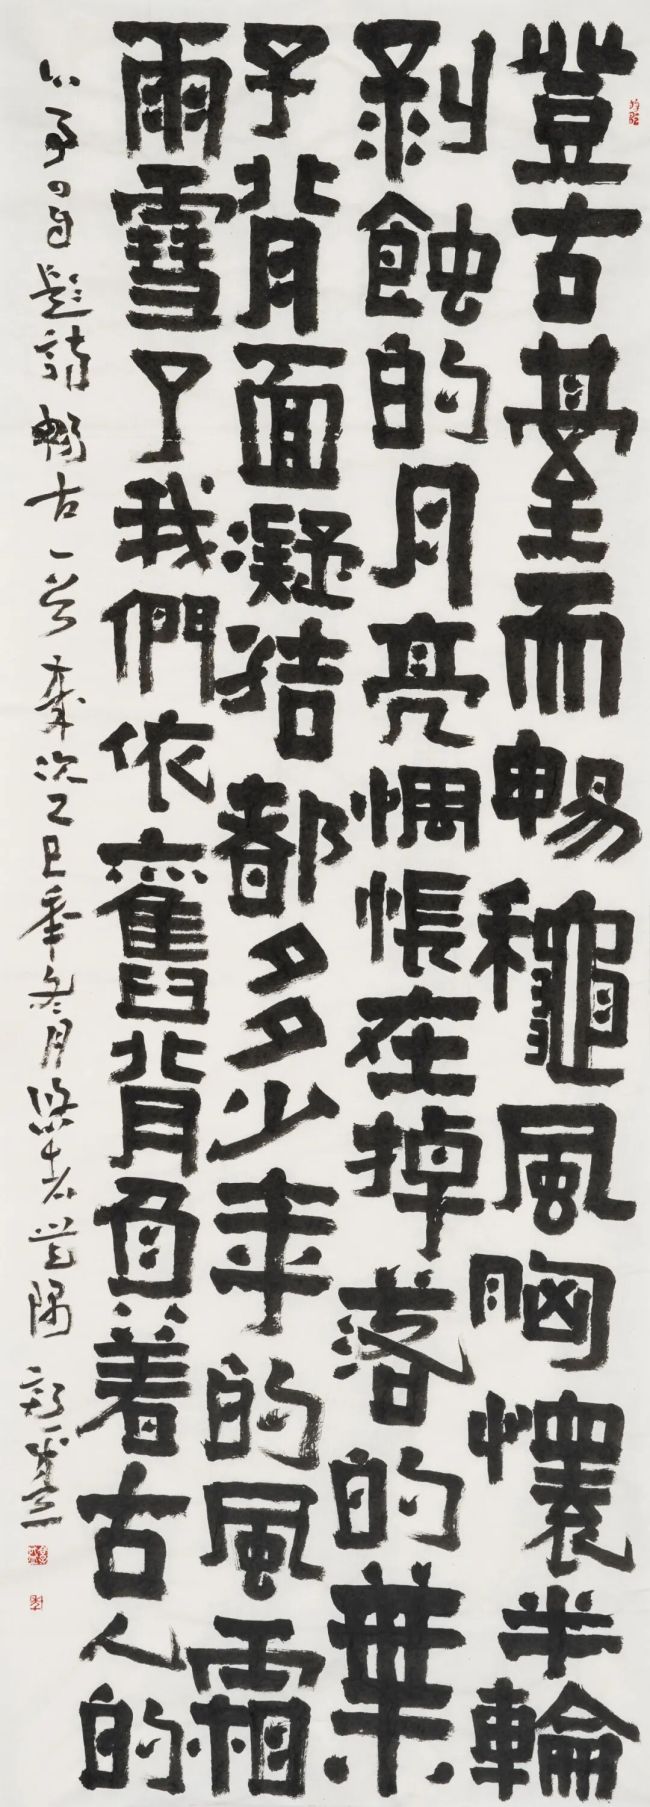 登古臺而暢龝風胸懷半輪
剥蝕的月亮惆悵在掉落的葉
子背面凝結都多少年的風霜
雨雪了我們依舊背負着古人的
詩暢古一首歲次乙巳年冬月